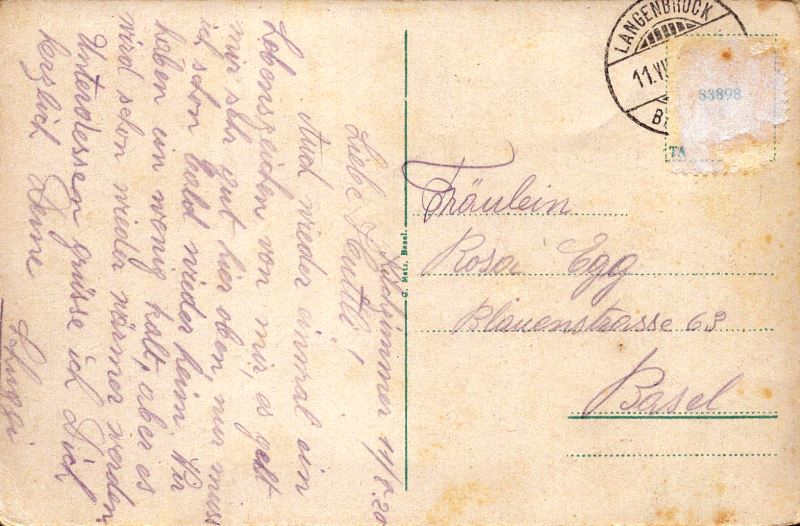 11/8.20
Liebe
Auch wieder einmal ein
Lebenszeichen von mir, es geht
mir sehr gut hier oben, nur muss
ich schon bald wieder heim. Wir
haben ein wenig kalt, aber es
wird schon wieder wärmer werden.
Unterdessen grüsse ich Dich
herzlich Deine
G. Metz, Basel.
LANGENBRUCK
11.VII
B
83898
TA
Fräulein
Rosa Egg
Blauenstrasse 63
Basel